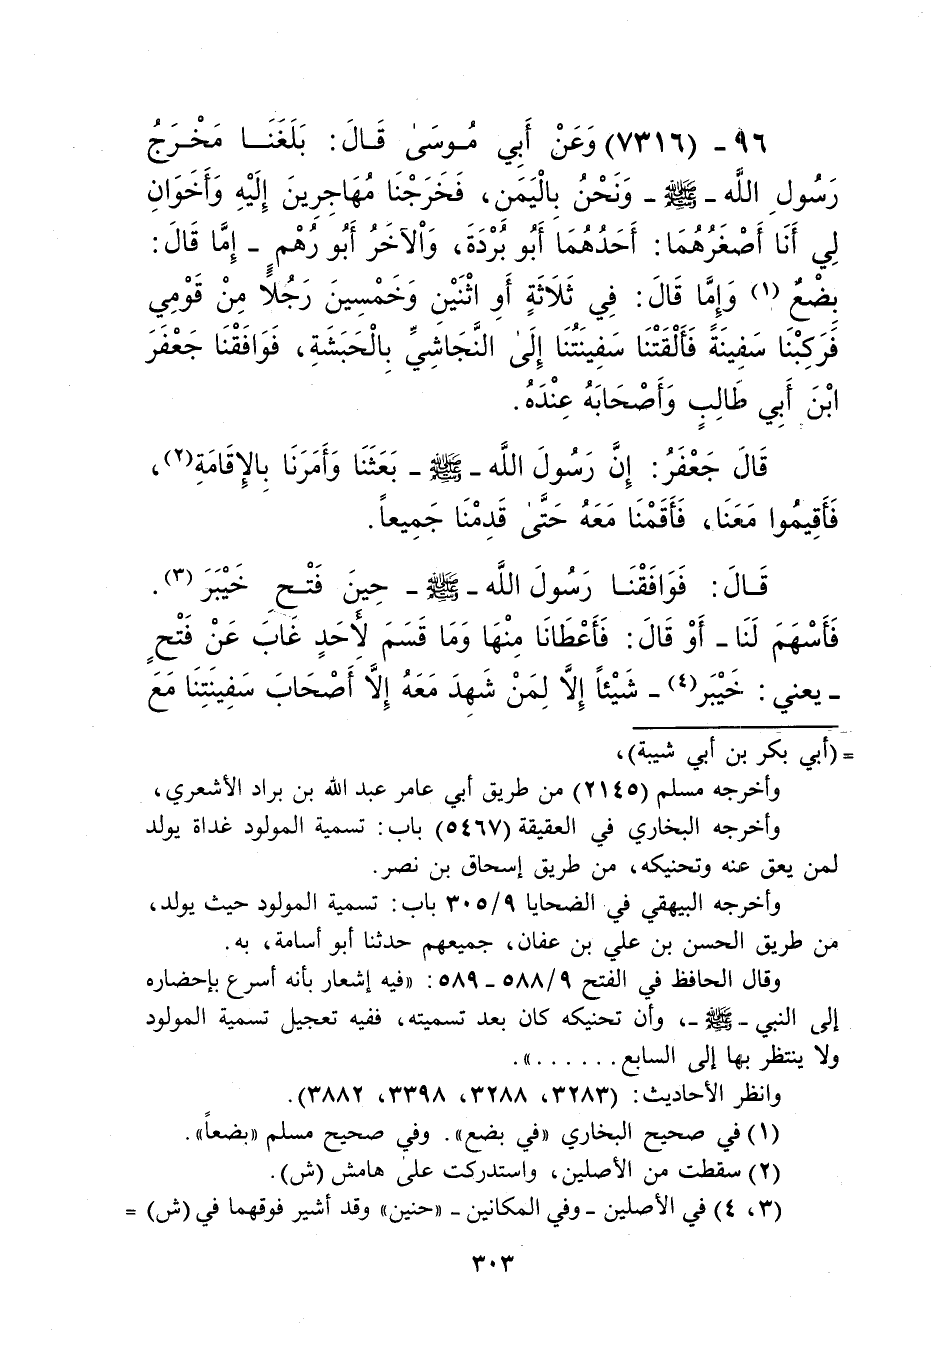 ٩٦ ـ (٧٣١٦) وَعَنْ أَبِي مُـوسَىٰ قَـالَ: بَلَغَنَــا مَخْـرَجُ
رَسُولِ اللَّه ـ ﷺ ـ وَنَحْنُ بِالْيَمَنِ، فَخَرَجْنَا مُهَاجِرِينَ إِلَيْهِ وَأَخَوَانِ
لِي أَنَا أَصْغَرُهُمَا: أَحَدُهُمَا أَبُو بُرْدَةَ، وَالآخَرُ أَبُو رُهْمٍ ـ إِمَّا قَالَ:
بِضْعٌ (١) وَإِمَّا قَالَ: فِي ثَلَاثَةٍ أَوِ اثْنَيْنِ وَخَمْسِينَ رَجُلًا مِنْ قَوْمِي
فَرَكِبْنَا سَفِينَةً فَأَلْقَتْنَا سَفِينَتُنَا إِلَىٰ النَّجَاشِيِّ بِالْحَبَشَةِ، فَوَافَقْنَا جَعْفَرَ
ابْنَ أَبِي طَالِبٍ وَأَصْحَابَهُ عِنْدَهُ.
قَالَ جَعْفَرُ: إِنَّ رَسُولَ اللَّه ـ ﷺ ـ بَعَثَنَا وَأَمَرَنَا بِالإِقَامَةِ(٢)،
فَأَقِيمُوا مَعَنَا، فَأَقَمْنَا مَعَهُ حَتَّىٰ قَدِمْنَا جَمِيعاً.
قَـالَ: فَوَافَقْنَـا رَسُولَ اللَّه ـ ﷺ ـ حِينَ فَتْـحِ خَيْبَرَ (٣).
فَأَسْهَمَ لَنَا ـ أَوْ قَالَ: فَأَعْطَانَا مِنْهَا وَمَا قَسَمَ لِأَحَدٍ غَابَ عَنْ فَتْحٍ
ـ يعني: خَيْبَر(٤) ـ شَيْئاً إِلَّا لِمَنْ شَهِدَ مَعَهُ إِلَّا أَصْحَابَ سَفِينَتِنَا مَعَ
= (أبي بكر بن أبي شيبة)،
وأخرجه مسلم (٢١٤٥) من طريق أبي عامر عبد الله بن براد الأشعري،
وأخرجه البخاري في العقيقة (٥٤٦٧) باب: تسمية المولود غداة يولد
لمن يعق عنه وتحنيكه، من طريق إسحاق بن نصر.
وأخرجه البيهقي في الضحايا ٣٠٥/٩ باب: تسمية المولود حيث يولد،
من طريق الحسن بن علي بن عفان، جميعهم حدثنا أبو أسامة، به.
وقال الحافظ في الفتح ٥٨٨/٩ ـ ٥٨٩: «فيه إشعار بأنه أسرع بإحضاره
إلى النبي ـ ﷺ ـ، وأن تحنيكه كان بعد تسميته، ففيه تعجيل تسمية المولود
ولا ينتظر بها إلى السابع......».
وانظر الأحاديث: (٣٢٨٣، ٣٢٨٨، ٣٣٩٨، ٣٨٨٢).
(١) في صحيح البخاري «في بضع». وفي صحيح مسلم «بضعاً».
(٢) سقطت من الأصلين، واستدركت علىٰ هامش (ش).
(٣، ٤) في الأصلين ـ وفي المكانين ـ «حنين» وقد أشير فوقهما في (ش) =
٣٠٣